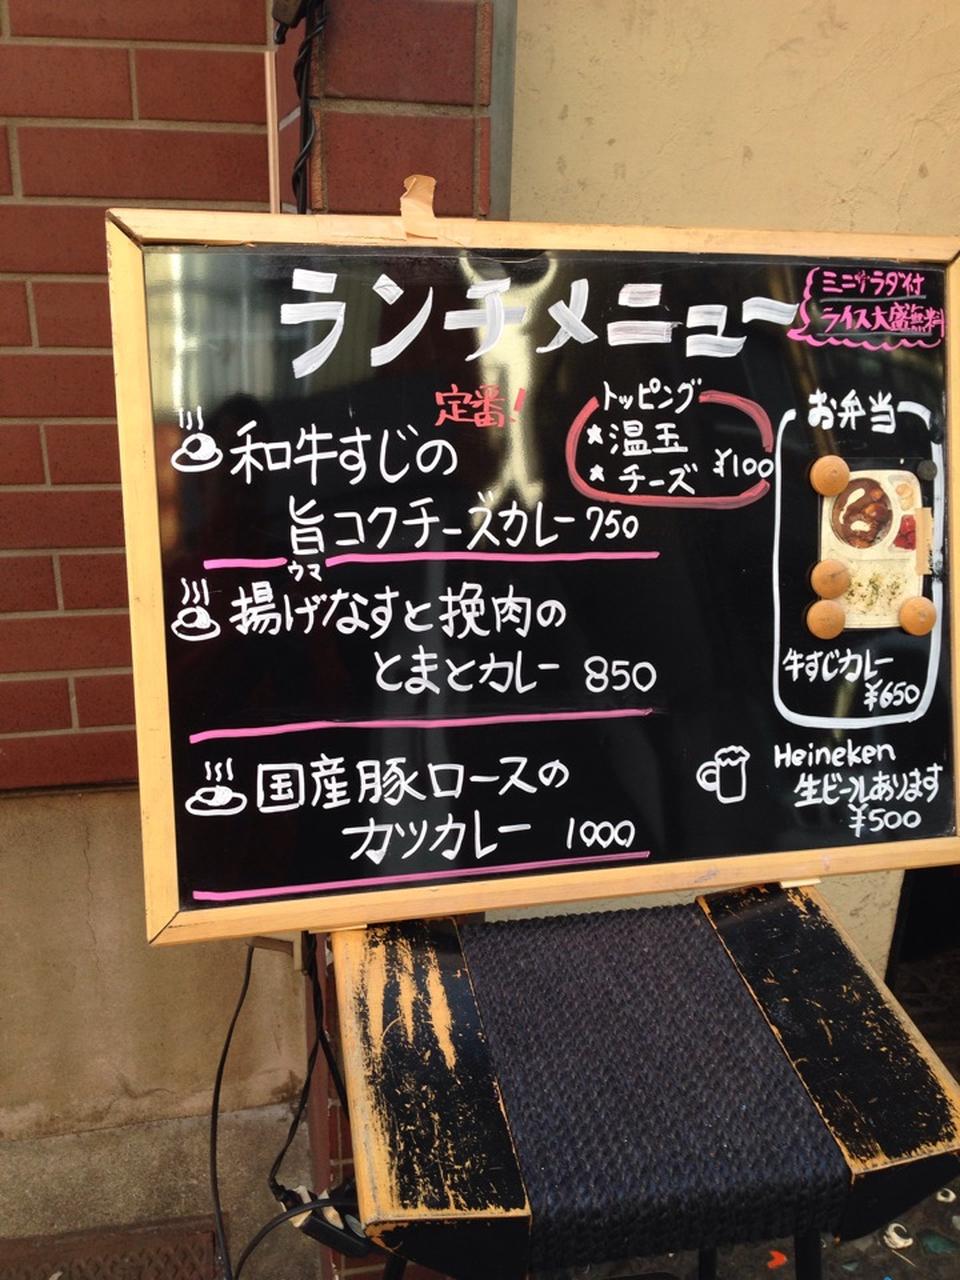 ランチメニュー
ミニサラダ付
ライス大盛無料
定番!
和牛すじの
旨コクチーズカレー 750
ウマ
揚げなすと挽肉の
とまとカレー 850
国産豚ロースの
カツカレー 1000
トッピング
★温玉
★チーズ ¥100
お弁当
牛すじカレー
¥650
Heineken
生ビールあります
¥500